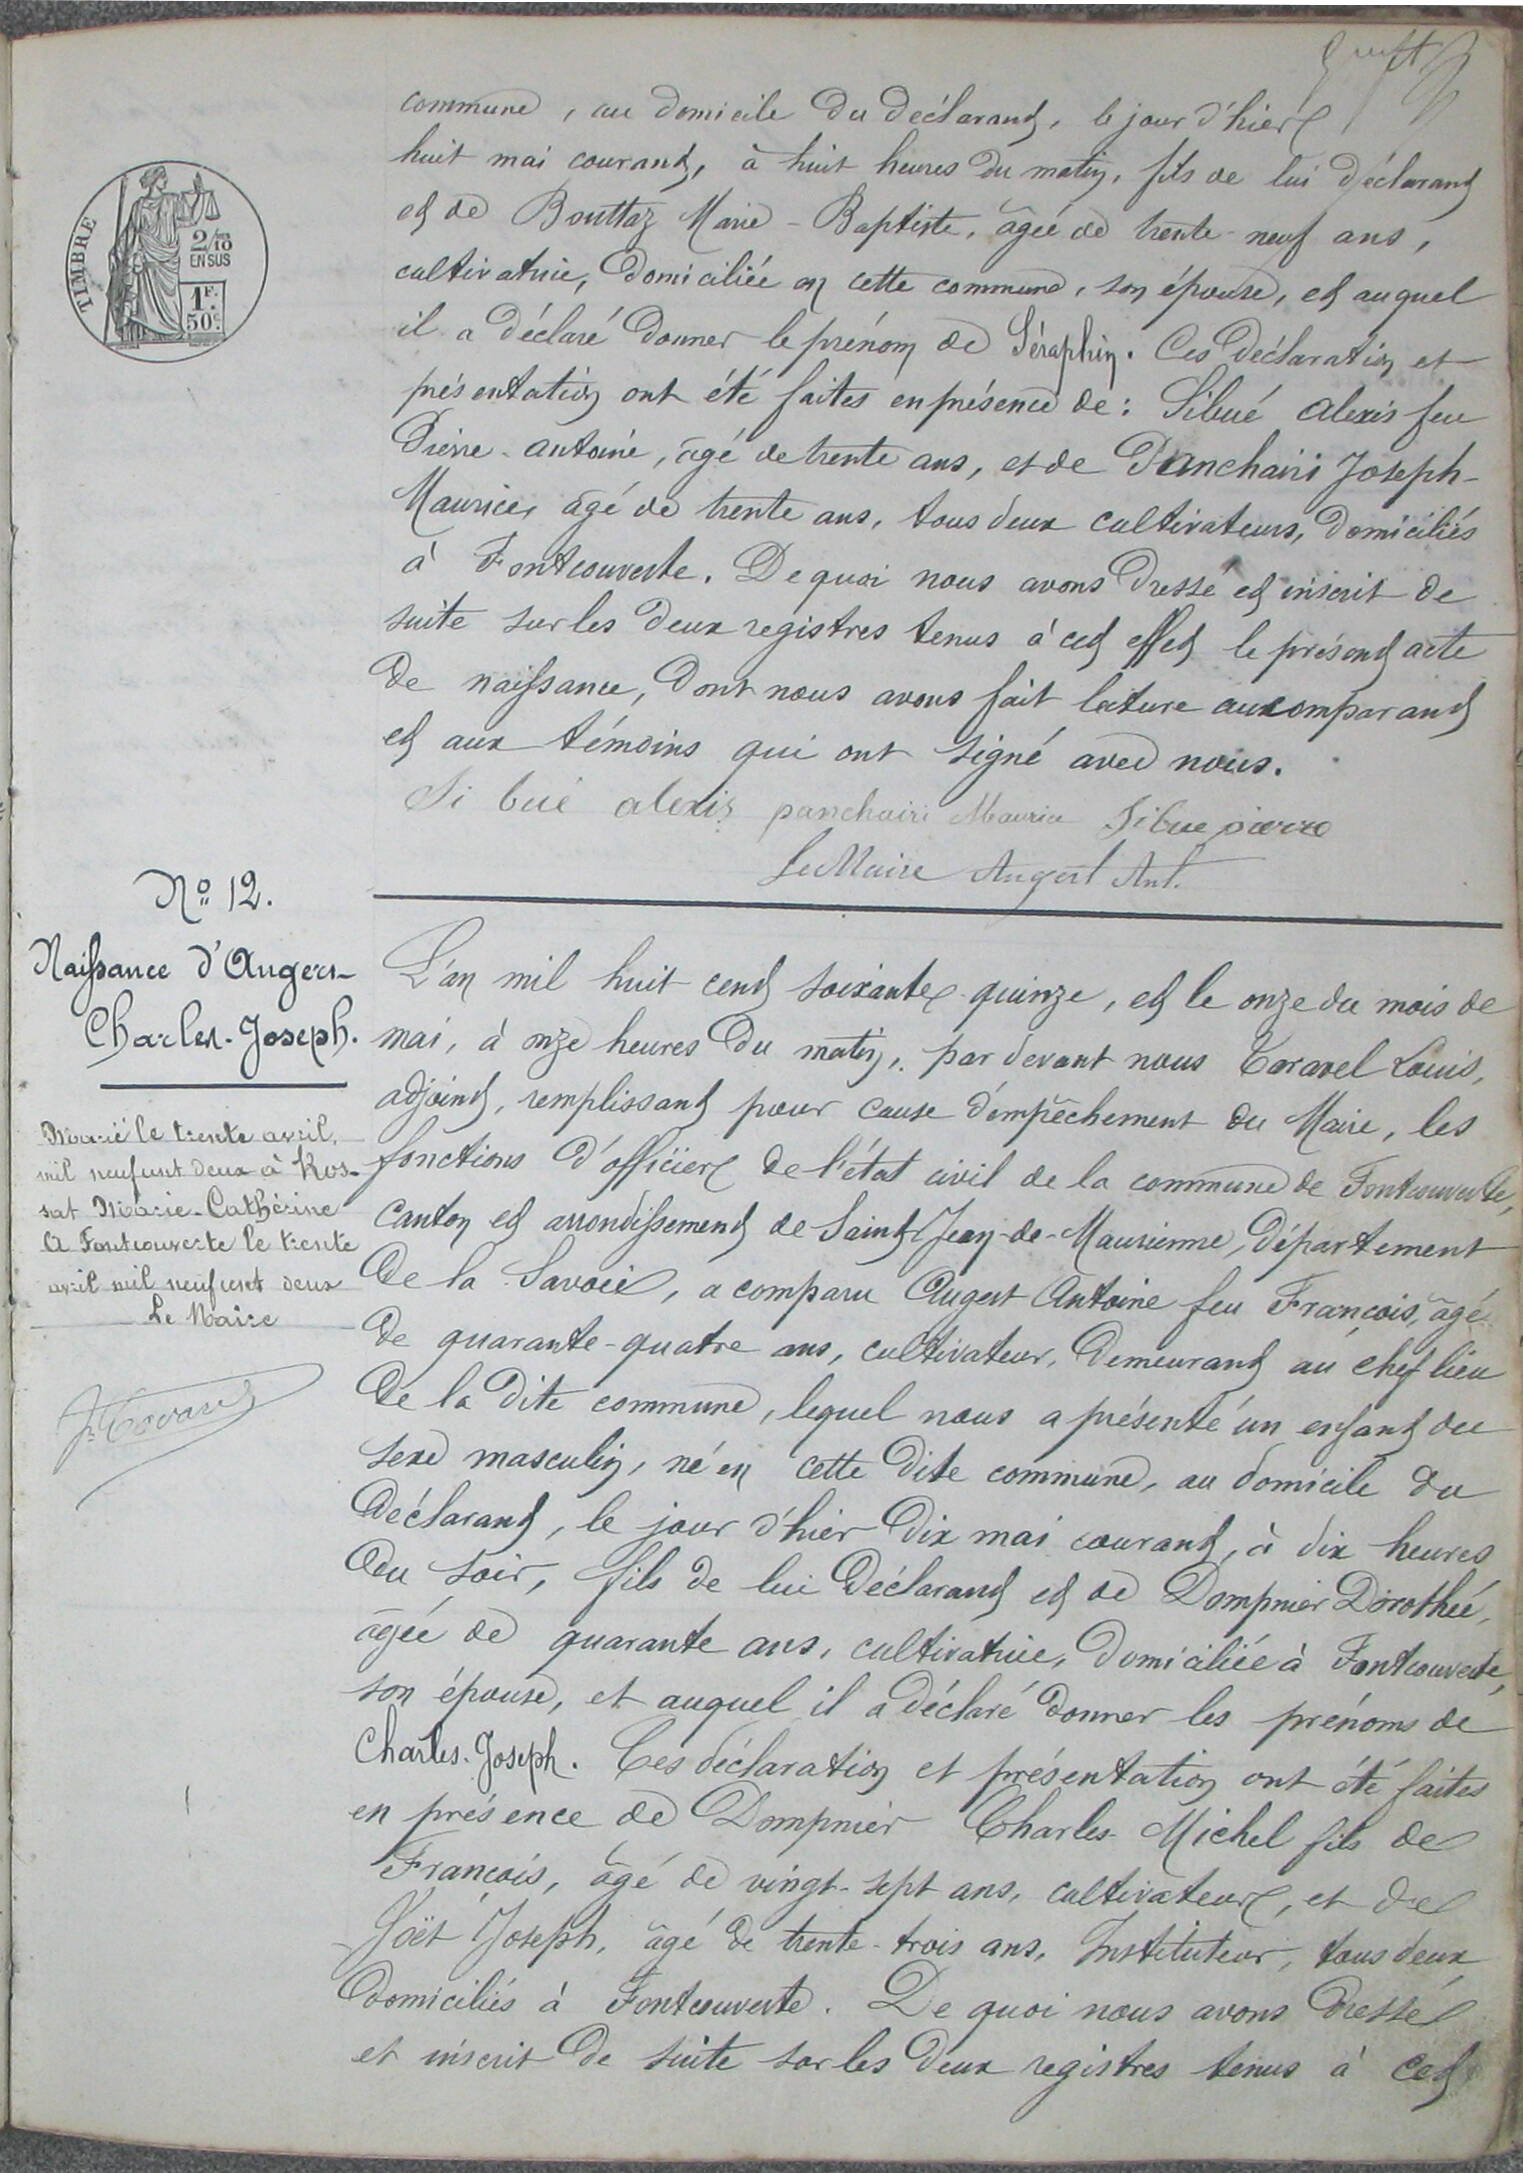 commune, au domicile du déclarant, le jour d'hier
huit mai courant, à huit heures du matin, fils de lui déclarant
et de Bouttaz Marie-Baptiste, âgée de trente-neuf ans,
cultivatrice, domiciliée en cette commune, son épouse, et auquel
il a déclaré donner le prénom de Séraphin. Ces déclaration et
présentation ont été faites en présence de: Sibué Alexis feu
Pierre-Antoine, âgé de trente ans, et de Panchairi Joseph-
Maurice, âgé de trente ans, tous deux cultivateurs, domiciliés
à Fontcouverte. De quoi nous avons dressé et inscrit de
suite sur les deux registres tenus à cet effet le présent acte
de naissance, dont nous avons fait lecture au comparant
et aux témoins qui ont signé avec nous.
Si bué alexis panchairi Maurice Sibue pierre
Le Maire Augert Ant.
TIMBRE
2/10
EN SUS
1F.
50c.
No 12.
Naissance d'Augert
Charles-Joseph.
Marié le trente avril,
mil neufcent deux à Ros-
sat Marie-Cathérine
A Fontcouverte le trente
avril mil neufcent deux
Le Maire
L'an mil huit cent soixante-quinze, et le onze du mois de
mai, à onze heures du matin, par devant nous Taravel Louis,
adjoint, remplissant pour cause d'empêchement du Maire, les
fonctions d'officier de l'état civil de la commune de Fontcouverte,
canton et arrondissement de Saint-Jean-de-Maurienne, département
de la Savoie, a comparu Augert Antoine feu François, âgé
de quarante-quatre ans, cultivateur, demeurant au chef lieu
de la dite commune, lequel nous a présenté un enfant du
sexe masculin, né en cette dite commune, au domicile du
déclarant, le jour d'hier dix mai courant, à dix heures
du soir, fils de lui déclarant et de Dompnier Dorothée,
âgée de quarante ans, cultivatrice, domiciliée à Fontcouverte,
son épouse, et auquel il a déclaré donner les prénoms de
Charles-Joseph. Ces déclaration et présentation ont été faites
en présence de Dompnier Charles-Michel fils de
François, âgé de vingt-sept ans, cultivateur, et de
Joët Joseph, âgé de trente-trois ans, Instituteur, tous deux
domiciliés à Fontcouverte. De quoi nous avons dressé
et inscrit de suite sur les deux registres tenus à cet